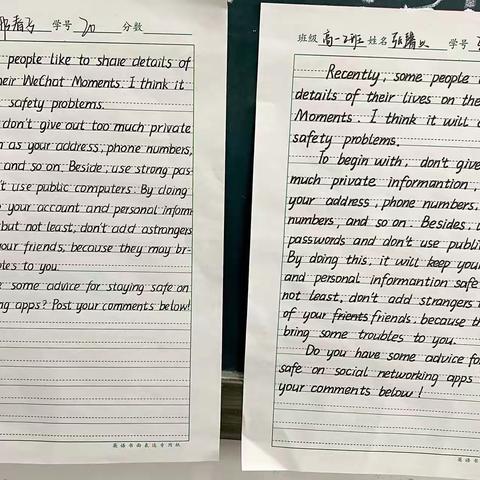 学号 20 分数
people like to share details of
heir WeChat Moments. I think it
safety problems.
don't give out too much private
as your address, phone numbers,
and so on. Beside, use strong pas-
't use public computers. By doing
your account and personal inform
but not least, don't add astrangers
your friends, because they may br-
les to you.
e some advice for staying safe on
ng apps? Post your comments below!
英语书面表达专用纸
班级 高一2班 姓名 学号
Recently, some people
details of their lives on the
Moments. I think it will
safety problems.
To begin with, don't give
much private informantion,
your address, phone numbers,
numbers, and so on. Besides,
passwords and don't use publi
By doing this, it will keep your
and personal informantion safe
not least, don't add strangers
of your frients friends, because th
bring some troubles to you.
Do you have some advice for
safe on social networking apps
your comments below!
英语书面表达专用纸